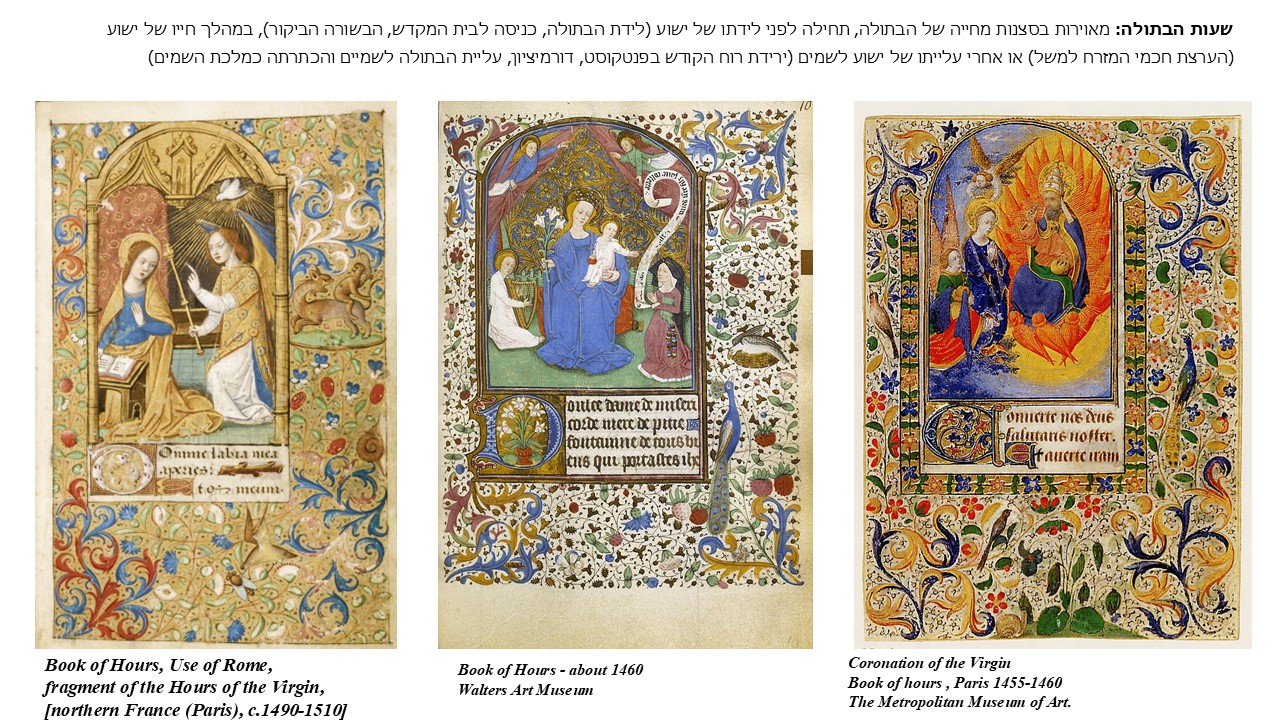 שעות הבתולה: מאוירות בסצנות מחייה של הבתולה, תחילה לפני לידתו של ישוע (לידת הבתולה, כניסה לבית המקדש, הבשורה הביקור), במהלך חייו של ישוע
(הערצת חכמי המזרח למשל) או אחרי עלייתו של ישוע לשמים (ירידת רוח הקודש בפנטקוסט, דורמיציון, עליית הבתולה לשמיים והכתרתה כמלכת השמים)
Domine labia mea
aperies:
t os meum.
10
Doulce dame de miseri
corde mere de pitie
fontainne de tous bi
ens qui portastes ihe
Conuerte nos deus
salutaris noster.
Et auerte iram
Book of Hours, Use of Rome,
fragment of the Hours of the Virgin,
[northern France (Paris), c.1490-1510]
Book of Hours - about 1460
Walters Art Museum
Coronation of the Virgin
Book of hours , Paris 1455-1460
The Metropolitan Museum of Art.